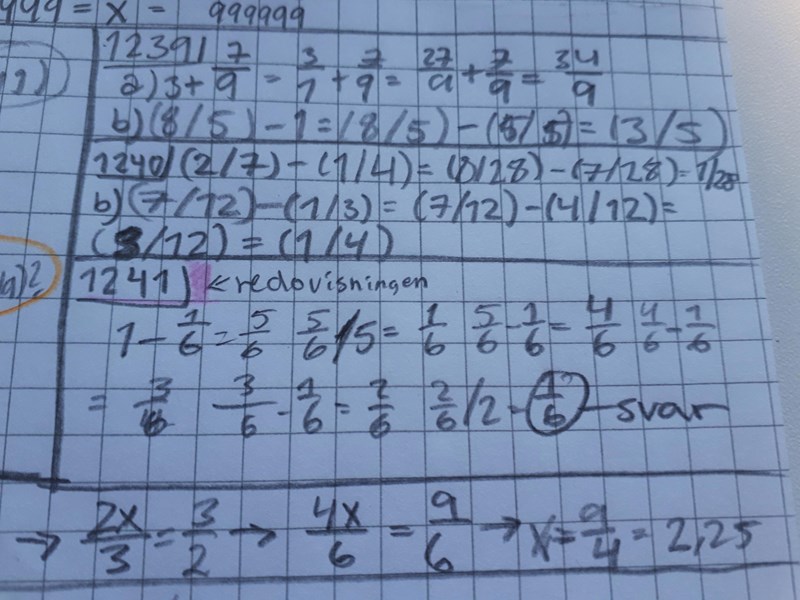 999 = x = 999999
1239) 7
a) 3 + 7/9 = 3/1 + 7/9 = 27/9 + 7/9 = 34/9
b) (8/5) - 1 = (8/5) - (5/5) = (3/5)
1240) (2/7) - (1/4) = (8/28) - (7/28) = 1/28
b) (7/12) - (1/3) = (7/12) - (4/12) =
(3/12) = (1/4)
a)?
1241) ← redovisningen
1 - 1/6 = 5/6 5/6 /5 = 1/6 5/6 - 1/6 = 4/6 4/6 - 1/6
= 3/6 3/6 - 1/6 = 2/6 2/6 /2 = 1/6 - svar
→ 2x/3 = 3/2 → 4x/6 = 9/6 → x = 9/4 = 2,25